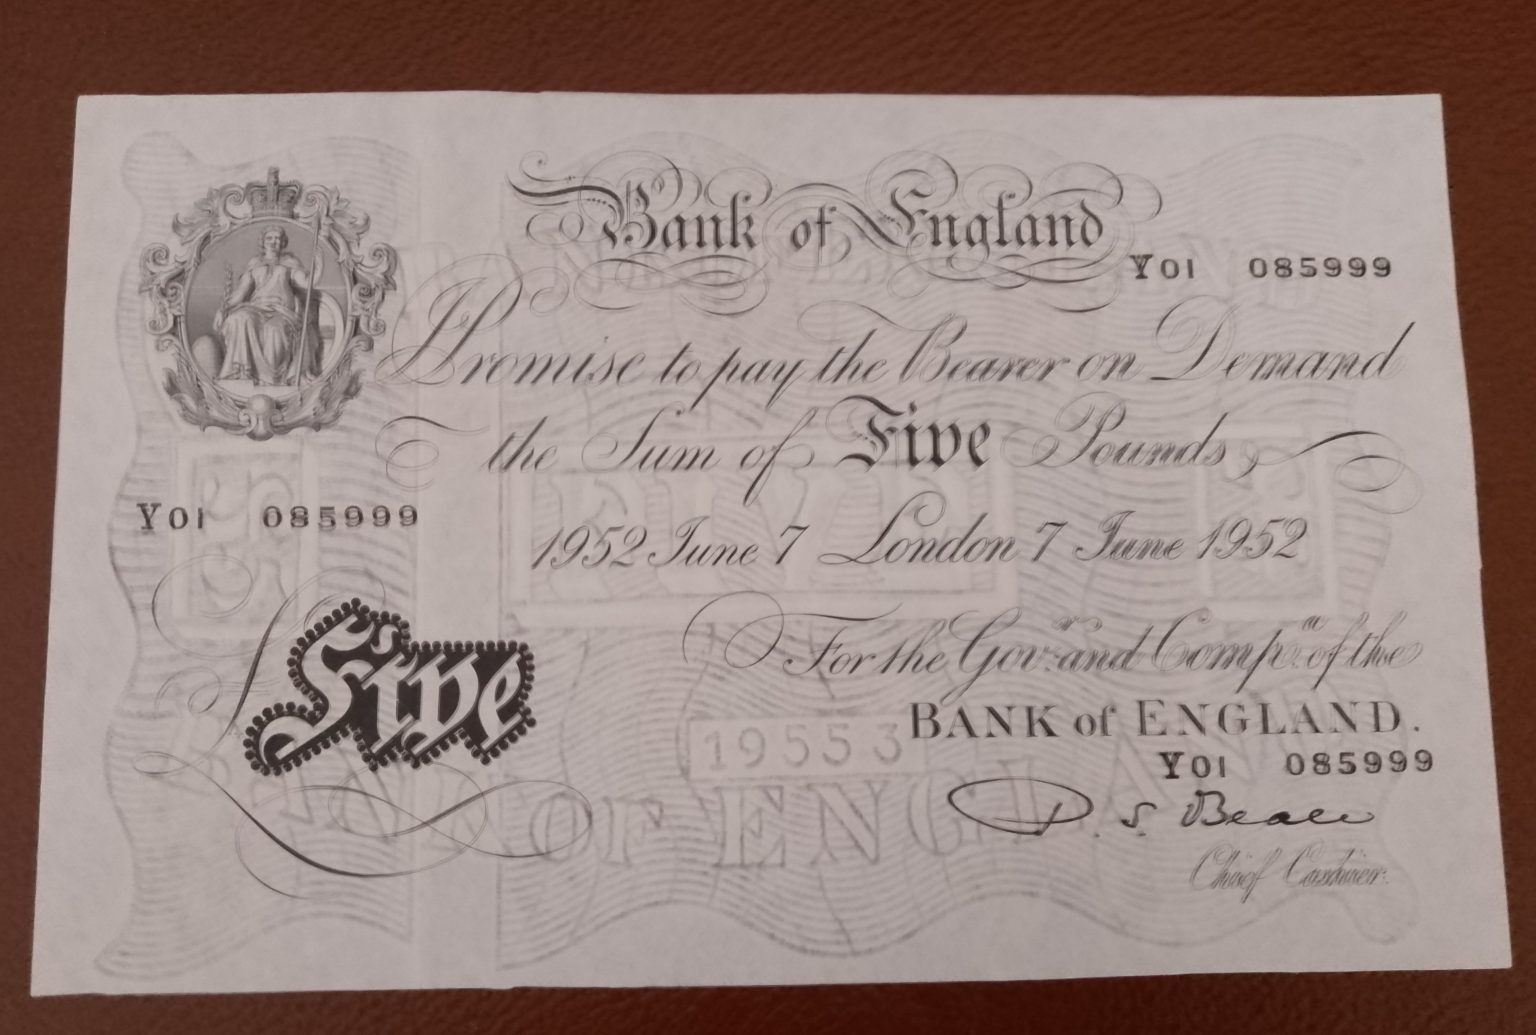 Bank of England
Y01 085999
I Promise to pay the Bearer on Demand
the Sum of Five Pounds
Y01 085999
1952 June 7 London 7 June 1952
Five
For the Govr. and Compa. of the
BANK of ENGLAND.
19553
Y01 085999
P. S. Beale
Chief Cashier.
OF ENGLAND